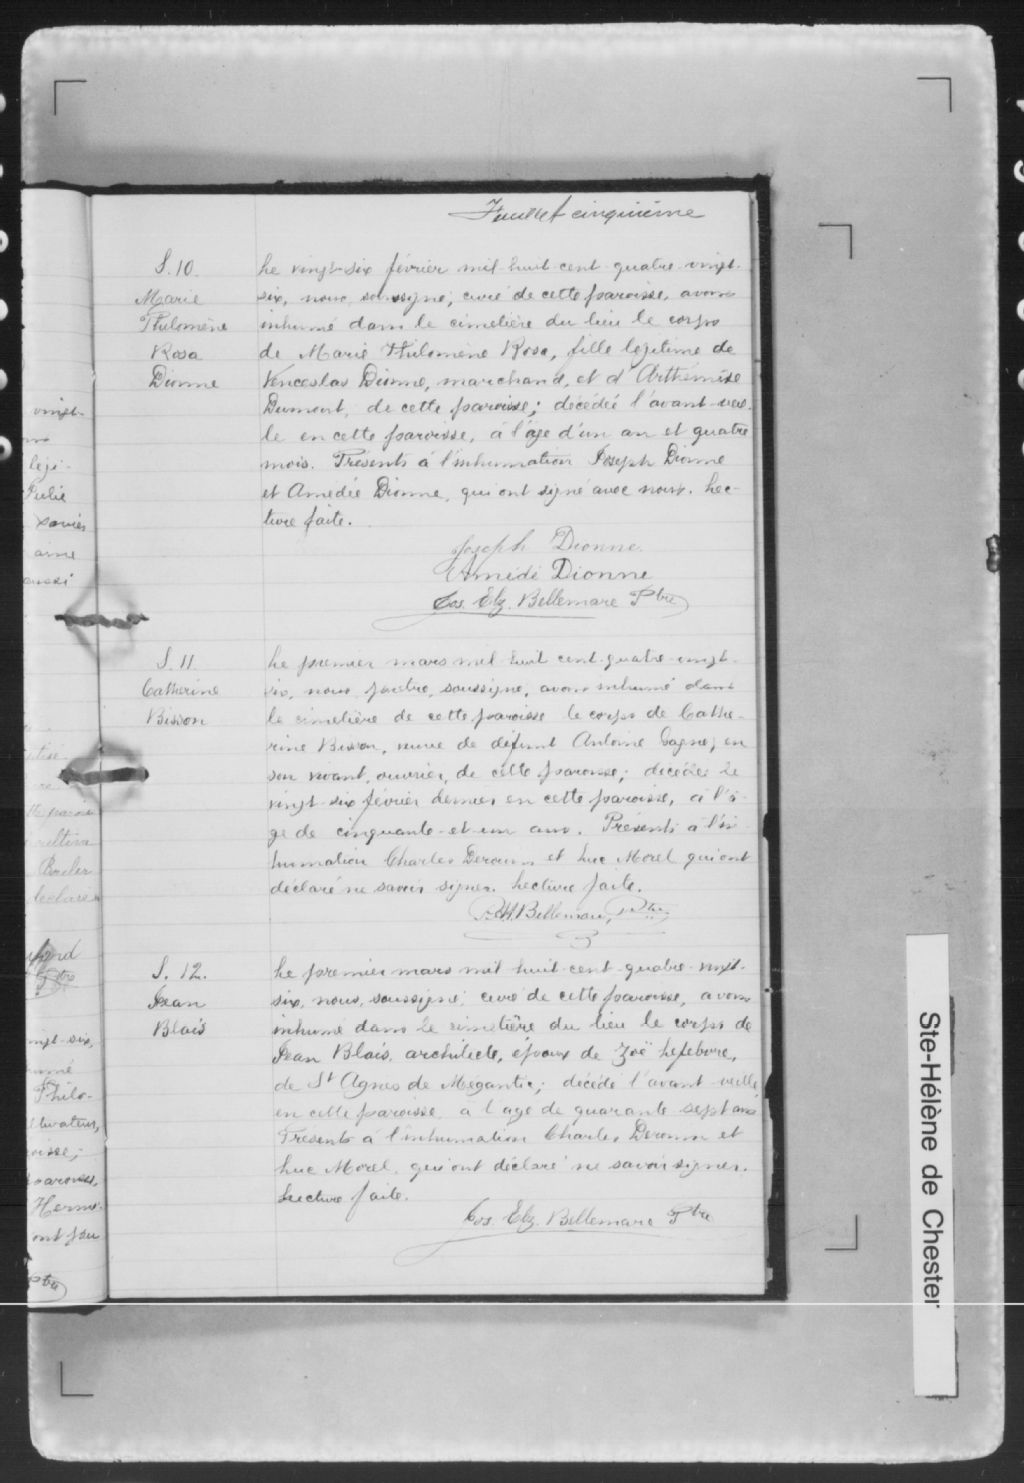 Feuillet cinquième
S. 10.
Marie
Philomène
Rosa
Dionne
Le vingt-six février mil huit cent quatre-vingt-
six, nous, soussigné, curé de cette paroisse, avons
inhumé dans le cimetière du lieu le corps
de Marie Philomène Rosa, fille légitime de
Venceslas Dionne, marchand, et d'Arthémise
Dumont, de cette paroisse; décédée l'avant-veil-
le en cette paroisse, à l'âge d'un an et quatre
mois. Présents à l'inhumation Joseph Dionne
et Amedée Dionne, qui ont signé avec nous. Lec-
ture faite.
Joseph Dionne
Amédé Dionne
Jos. Elz. Bellemare Ptre
S. 11.
Catherine
Bisson
Le premier mars mil huit cent quatre-vingt-
six, nous, prêtre, soussigné, avons inhumé dans
le cimetière de cette paroisse le corps de Cathe-
rine Bisson, veuve de défunt Antoine Gagné, en
son vivant, ouvrier, de cette paroisse; décédée le
vingt-six février dernier en cette paroisse, à l'â-
ge de cinquante-et-un ans. Présents à l'in-
humation Charles Derouin et Luc Morel qui ont
déclaré ne savoir signer. Lecture faite.
Bellemare, Ptre
S. 12.
Jean
Blais
Le premier mars mil huit cent quatre-vingt-
six, nous, soussigné, curé de cette paroisse, avons
inhumé dans le cimetière du lieu le corps de
Jean Blais, architecte, époux de Zoë Lefebvre,
de St Agnès de Mégantic; décédé l'avant-veille
en cette paroisse à l'âge de quarante-sept ans
Présents à l'inhumation Charles Derouin et
Luc Morel, qui ont déclaré ne savoir signer.
Lecture faite.
Jos. Elz. Bellemare Ptre
Ste-Hélène de Chester